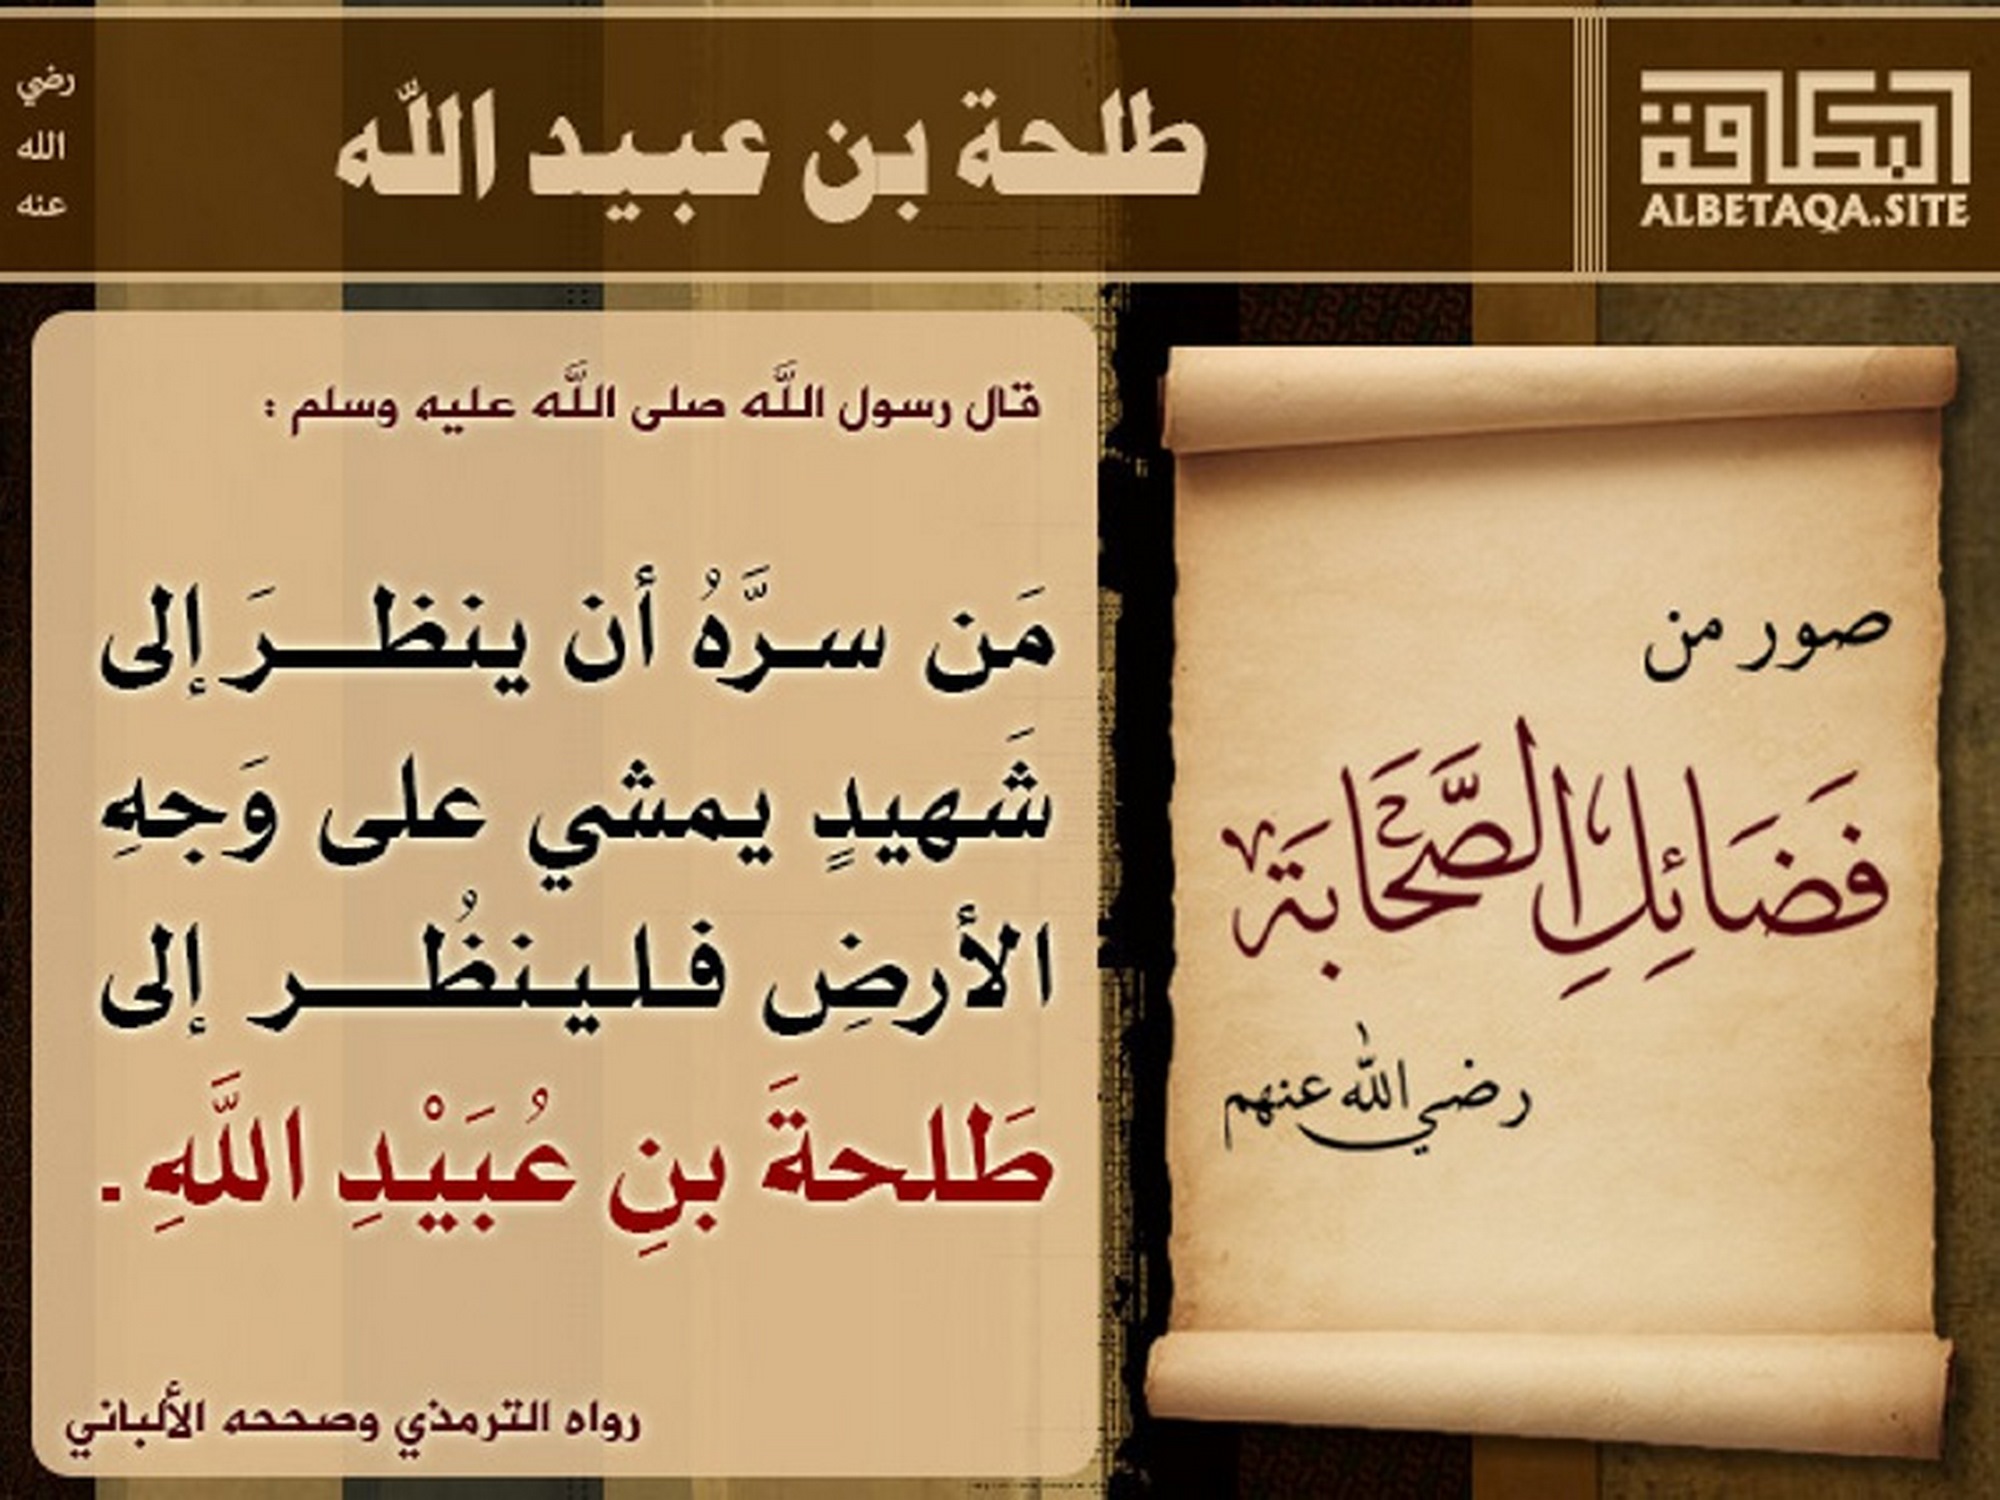 البطاقة
ALBETAQA.SITE
طلحة بن عبيد الله
رضي
الله
عنه
صور من
فَضَائِلِ الصَّحَابَة
رضي الله عنهم
قال رسول اللَّه صلى اللَّه عليه وسلم :
مَن سرَّهُ أن ينظرَ إلى
شَهيدٍ يمشي على وَجهِ
الأرضِ فلينظُر إلى
طَلحةَ بنِ عُبَيْدِ اللَّهِ .
رواه الترمذي وصححه الألباني